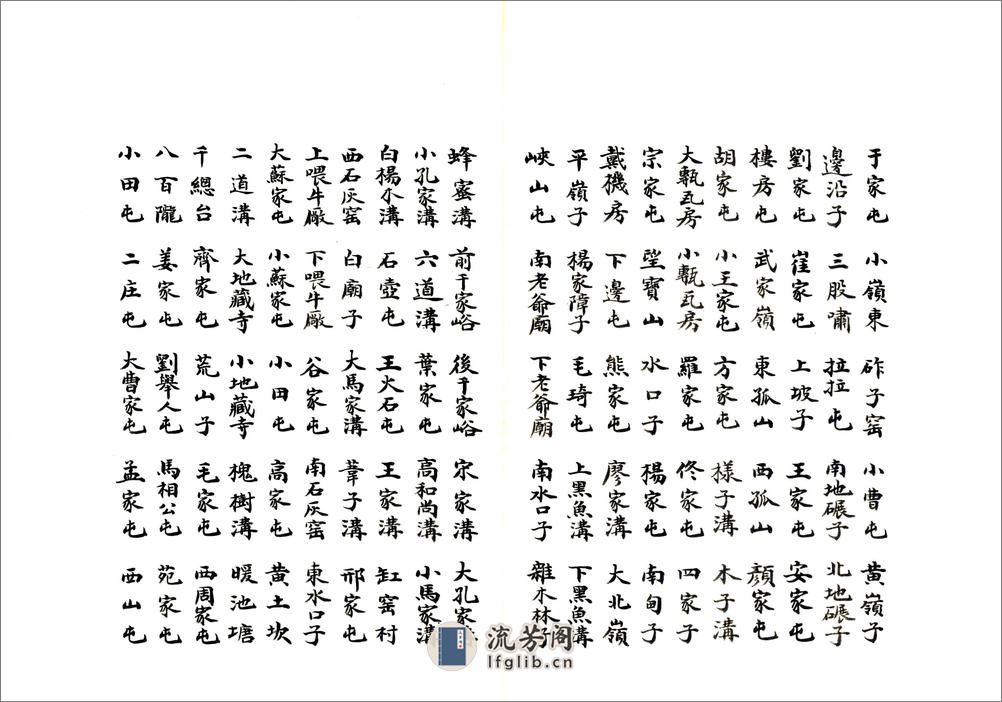 于家屯 小嶺東 砟子窑 小曹屯 黄嶺子
邊沿子 三股嘯 拉拉屯 南地碾子 北地碾子
劉家屯 崔家屯 上坡子 王家屯 安家屯
樓房屯 武家嶺 東孤山 西孤山 顏家屯
胡家屯 小王家屯 方家屯 樣子溝 木子溝
大甎瓦房 小甎瓦房 羅家屯 佟家屯 四家子
宗家屯 望寶山 水口子 楊家屯 南甸子
戴磯房 下邊屯 熊家屯 廖家溝 大北嶺
平嶺子 楊家障子 毛琦屯 上黑魚溝 下黑魚溝
峽山屯 南老爺廟 下老爺廟 南水口子 雜木林子
蜂蜜溝 前千家峪 後千家峪 宋家溝 大孔家
小孔家溝 六道溝 葉家屯 高和尚溝 小馬家溝
白楊木溝 石壺屯 王火石屯 王家溝 缸窑村
西石灰窑 白廟子 大馬家溝 葦子溝 邢家屯
上喂牛厰 下喂牛厰 谷家屯 南石灰窑 東水口子
大蘇家屯 小蘇家屯 小田屯 高家屯 黄土坎
二道溝 大地藏寺 小地藏寺 槐樹溝 暖池塘
千總台 齊家屯 荒山子 毛家屯 西周家屯
八百隴 姜家屯 劉舉人屯 馬相公屯 苑家屯
小田屯 二庄屯 大曹家屯 孟家屯 西山屯
流芳阁
lfglib.cn